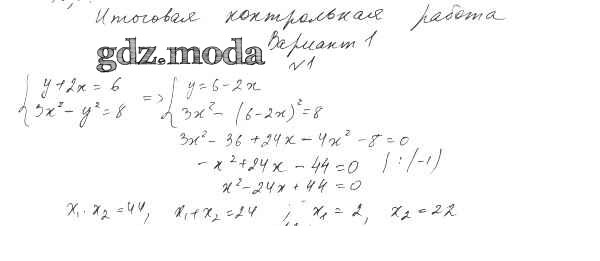 Итоговая контрольная работа
gdz.moda Вариант 1
√1
y+2x=6 y=6-2x
3x²-y²=8 => 3x²-(6-2x)²=8
3x²-36+24x-4x²-8=0
-x²+24x-44=0 | :(-1)
x²-24x+44=0
x₁·x₂=44, x₁+x₂=24 ; x₁=2, x₂=22